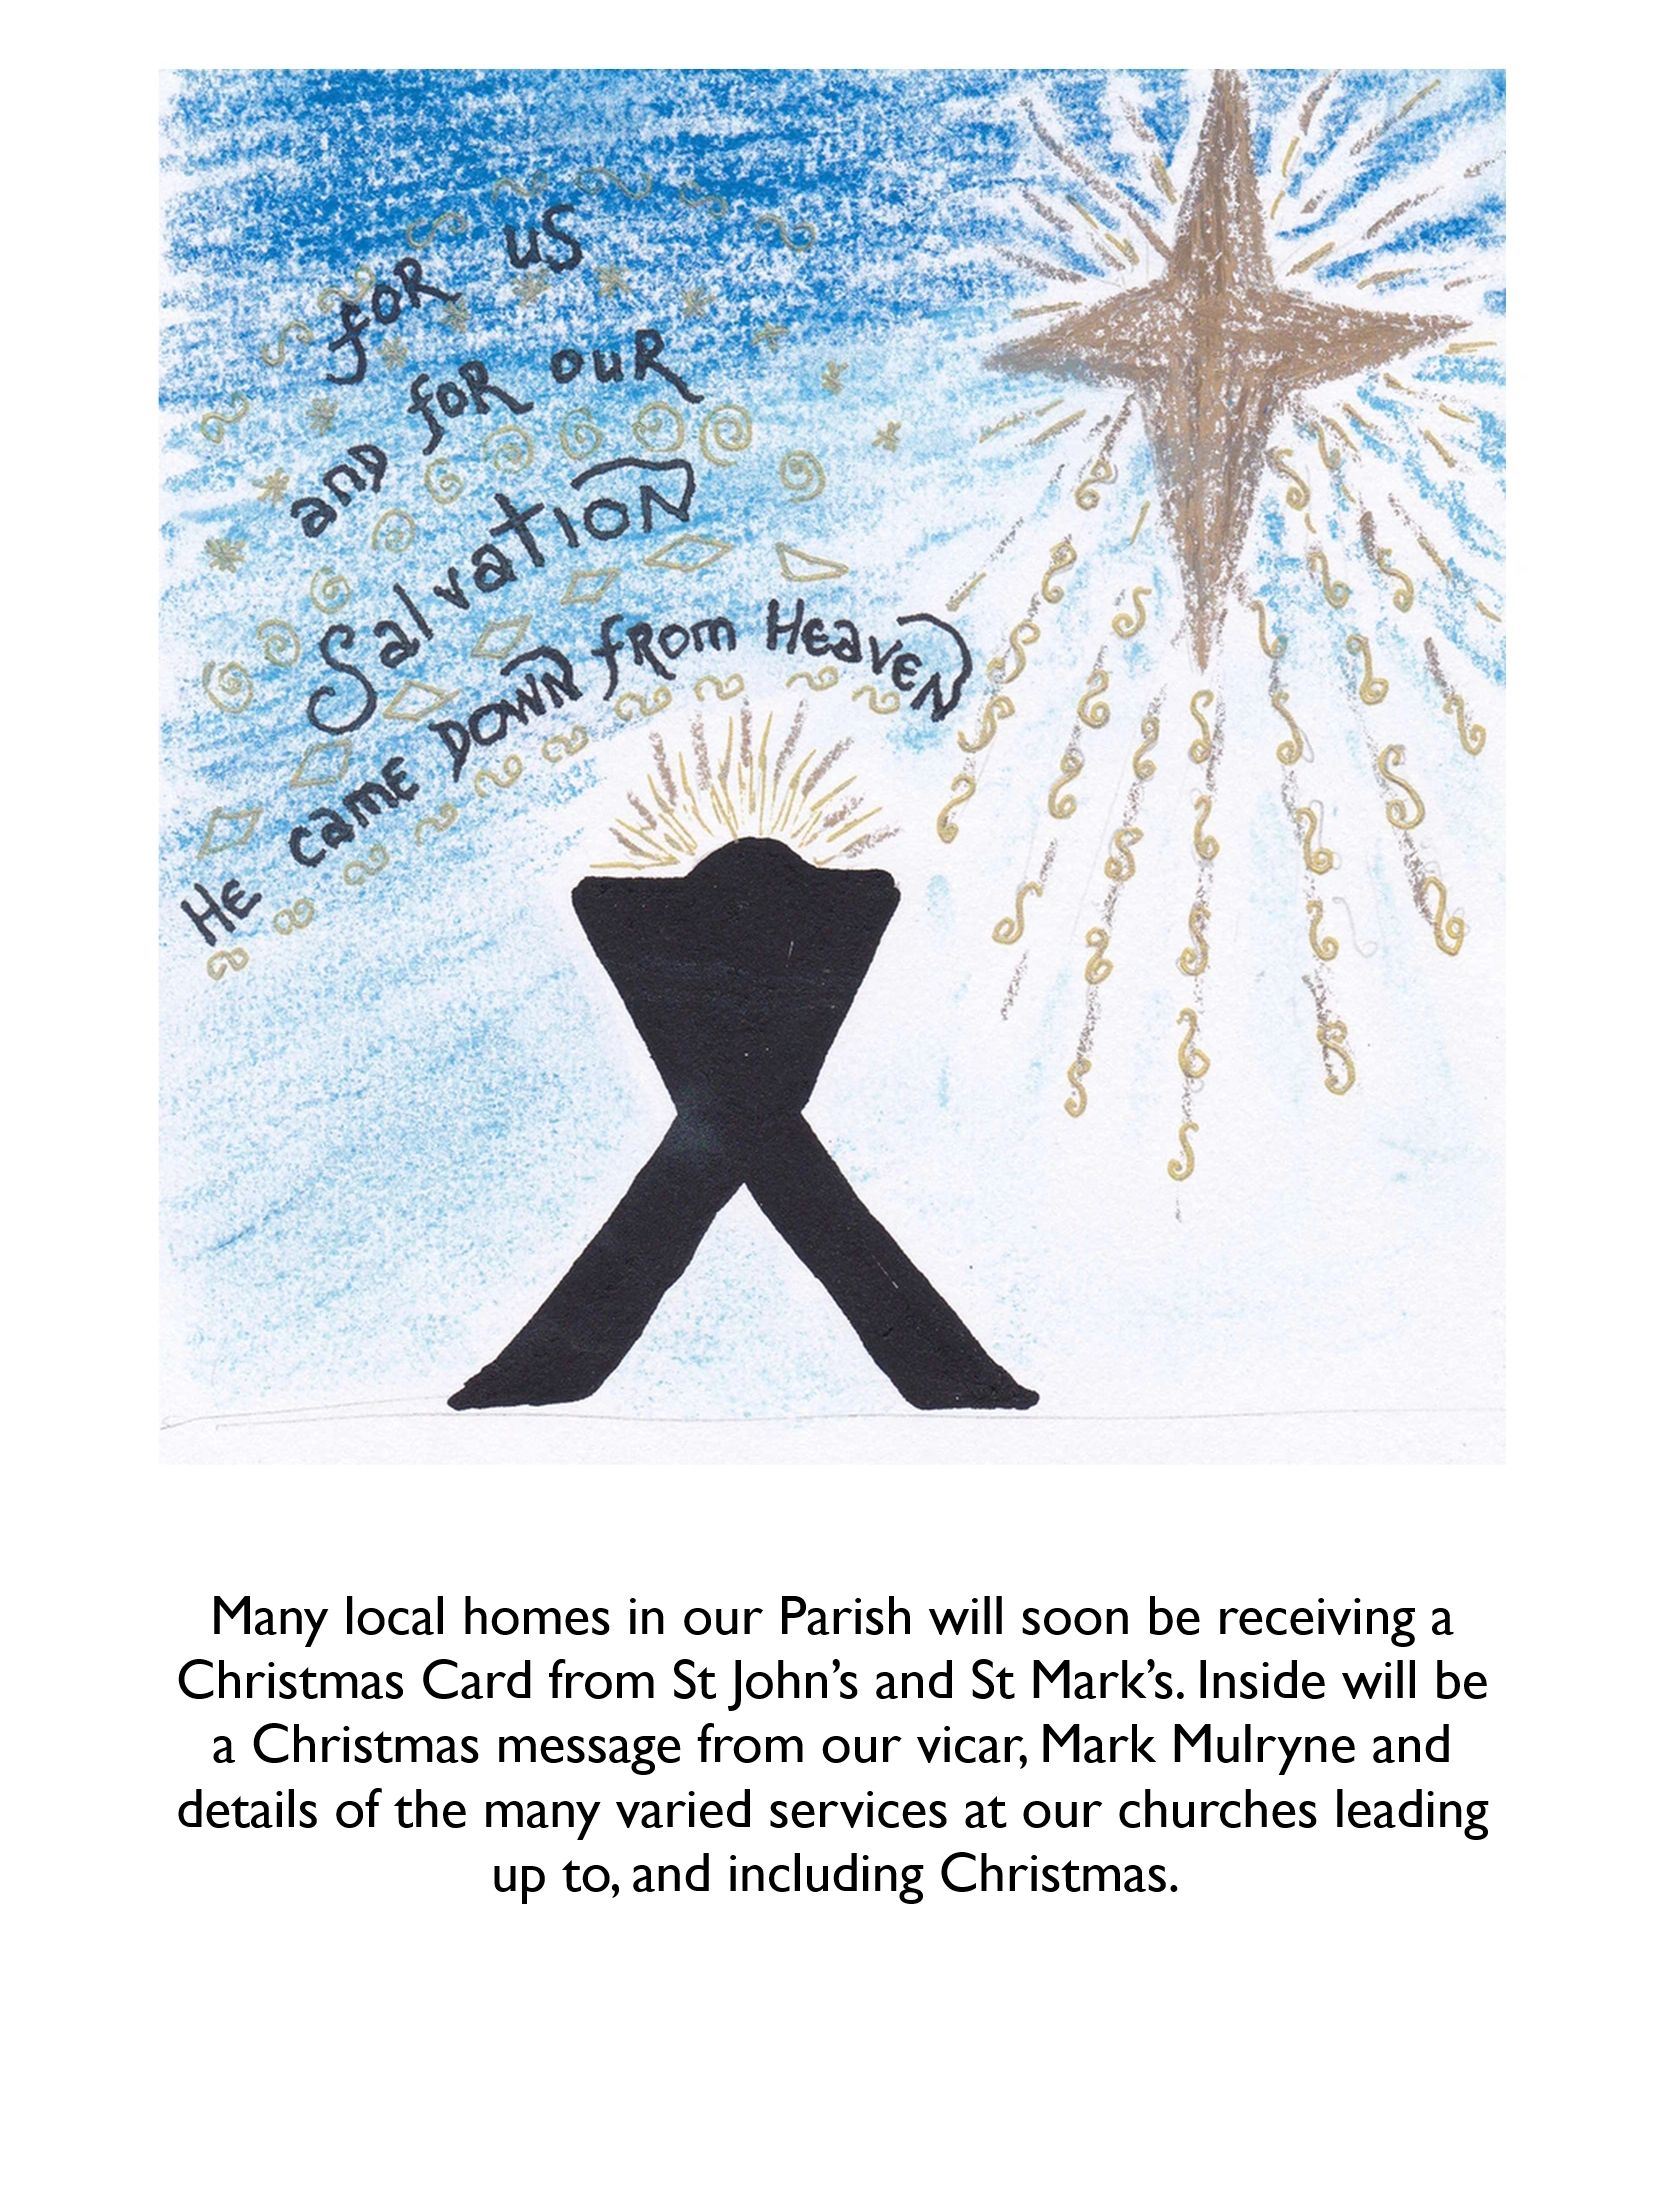 for us
and for our
Salvation
He came down from Heaven
Many local homes in our Parish will soon be receiving a
Christmas Card from St John’s and St Mark’s. Inside will be
a Christmas message from our vicar, Mark Mulryne and
details of the many varied services at our churches leading
up to, and including Christmas.